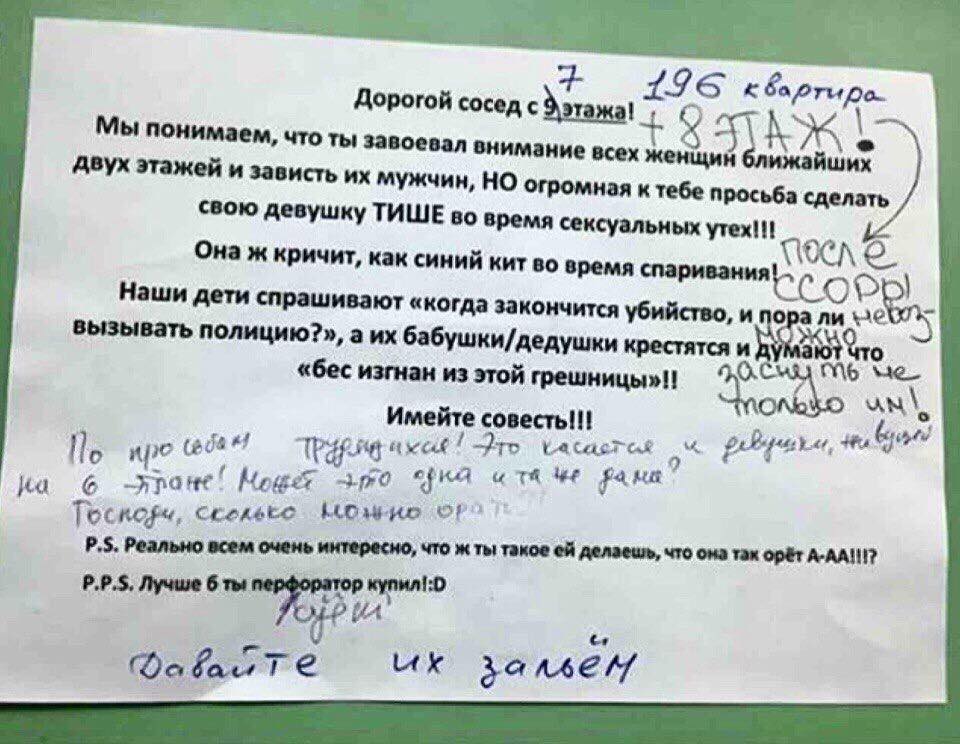 7 196 квартира
Дорогой сосед с 9 этажа!
+ 8 ЭТАЖ!
Мы понимаем, что ты завоевал внимание всех женщин ближайших
двух этажей и зависть их мужчин, НО огромная к тебе просьба сделать
свою девушку ТИШЕ во время сексуальных утех!!!
Она ж кричит, как синий кит во время спаривания!
Наши дети спрашивают «когда закончится убийство, и пора ли
вызывать полицию?», а их бабушки/дедушки крестятся и думают что
«бес изгнан из этой грешницы»!!
после
ссоры
невоз-
можно
заснуть не
только им!
Имейте совесть!!!
По просьбам трудящихся! Это касается и девушки, живущей
на 6 этаже! Может это одна и та же дама?
Господи, сколько можно орать
P.S. Реально всем очень интересно, что ж ты такое ей делаешь, что она так орёт А-АА!!!!?
P.P.S. Лучше б ты перфоратор купил!:D
Давайте их зальём